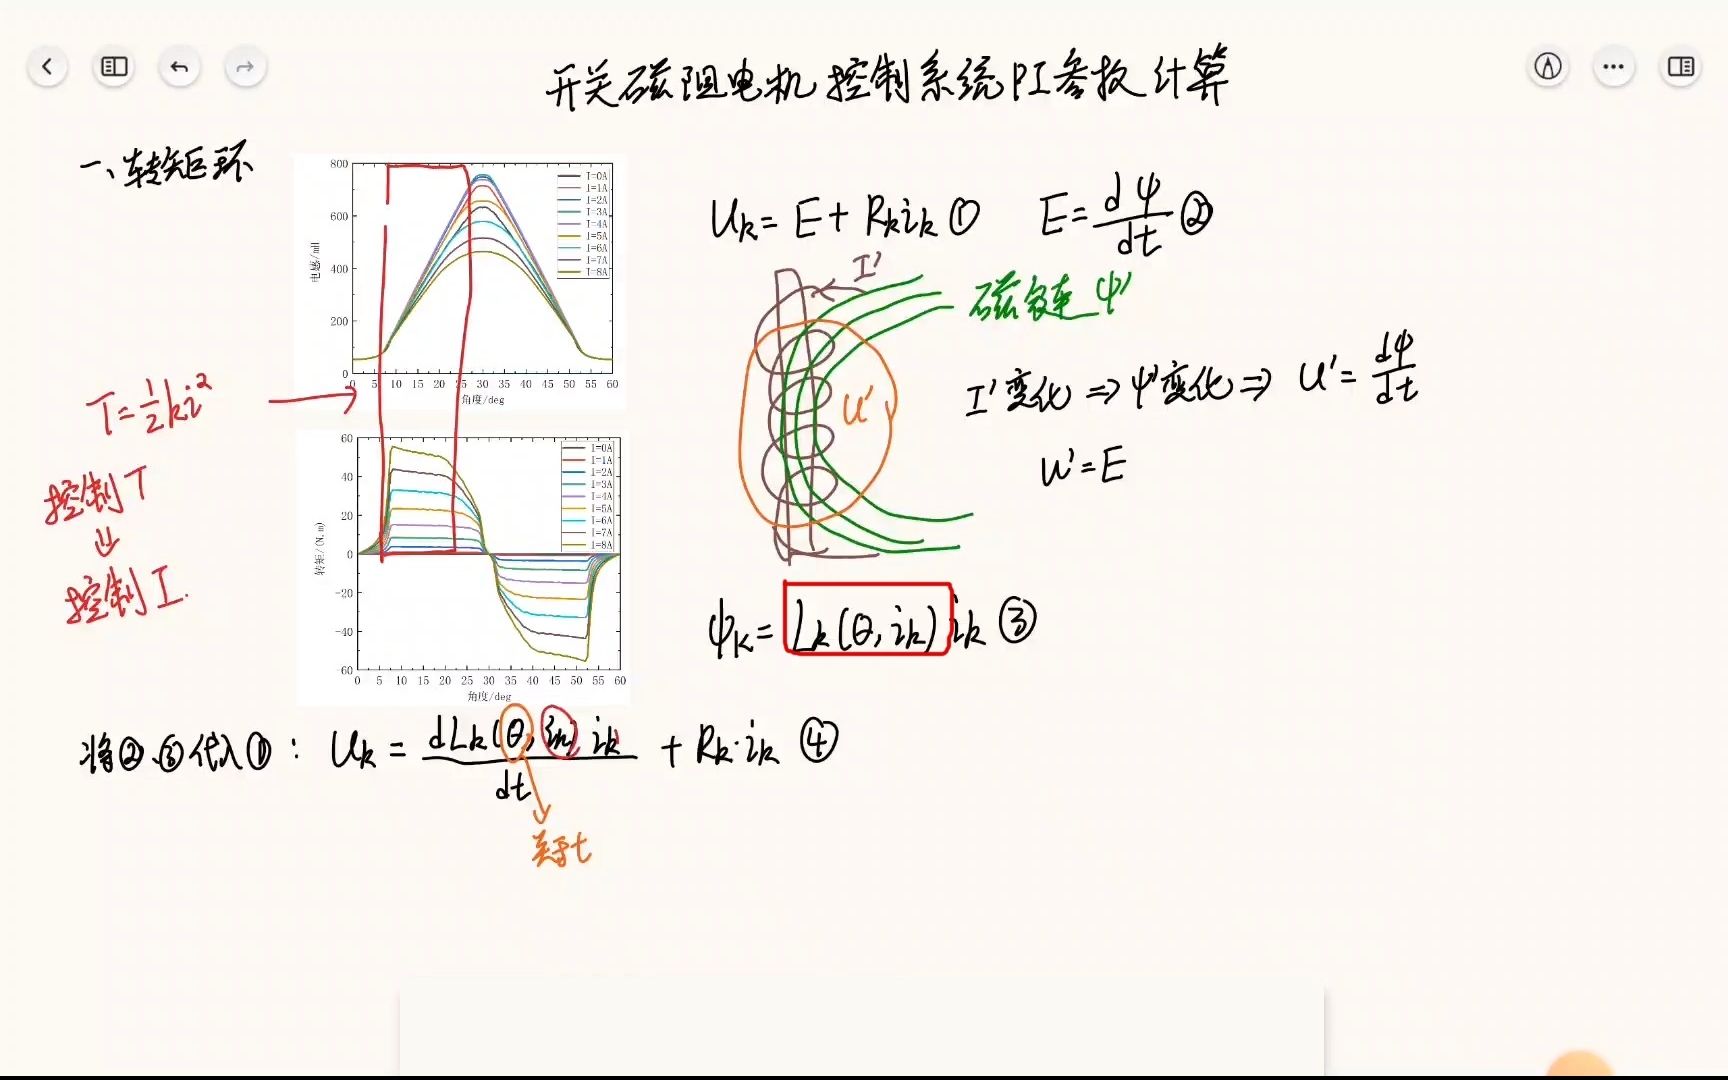 开关磁阻电机控制系统PI参数计算
一、转矩环
800
600
400
200
0
电感/mH
I=0A
I=1A
I=2A
I=3A
I=4A
I=5A
I=6A
I=7A
I=8A
0 5 10 15 20 25 30 35 40 45 50 55 60
角度/deg
T=½ki²
控制T
⇓
控制I.
60
40
20
0
-20
-40
-60
转矩/(N.m)
I=0A
I=1A
I=2A
I=3A
I=4A
I=5A
I=6A
I=7A
I=8A
0 5 10 15 20 25 30 35 40 45 50 55 60
角度/deg
Uk= E+ Rkik ① E=dψ/dt ②
I'
磁链ψ'
U'
I'变化 ⇒ ψ'变化 ⇒ U'=dψ/dt
U'=E
ψk= Lk(θ,ik)ik ③
将②、③代入①: Uk = dLk(θ,ik)ik/dt + Rk·ik ④
关于t